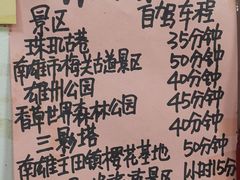 景区 自驾车程
珠玑古巷 35分钟
南雄市梅关古道景区 50分钟
雄州公园 40分钟
香草世界森林公园 45分钟
三影塔 40分钟
南雄王田镇樱花基地 50分钟
景区 1小时15分